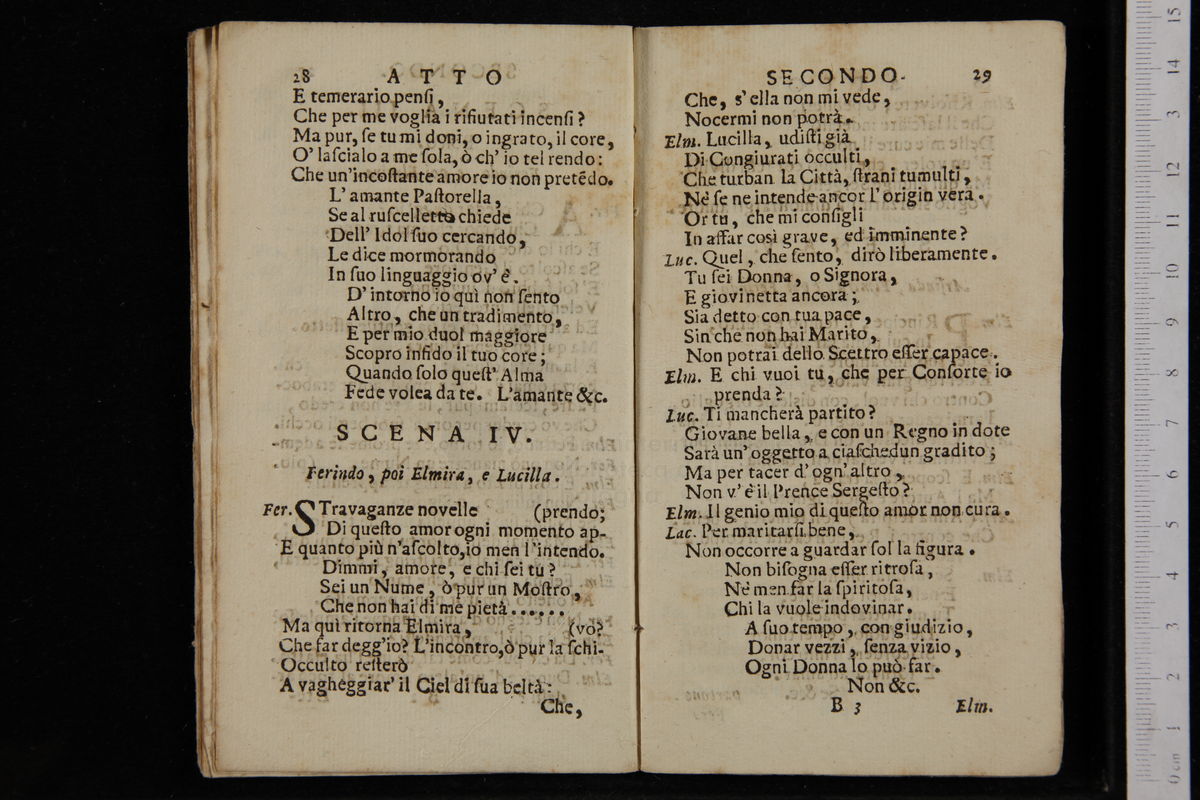 28 ATTO
E temerario penſi,
Che per me voglia i rifiutati incenſi?
Ma pur, ſe tu mi doni, o ingrato, il core,
O' laſcialo a me ſola, ò ch' io tel rendo:
Che un'incoſtante amore io non pretẽdo.
L' amante Paſtorella,
Se al ruſcelletto chiede
Dell' Idol ſuo cercando,
Le dice mormorando
In ſuo linguaggio ov' è.
D' intorno io quì non ſento
Altro, che un tradimento,
E per mio duol maggiore
Scopro infido il tuo core;
Quando ſolo queſt' Alma
Fede volea da te. L'amante &c.
SCENA IV.
Ferindo, poi Elmira, e Lucilla.
Fer. STravaganze novelle (prendo;
Di queſto amor ogni momento ap-
E quanto più n'aſcolto, io men l'intendo.
Dimmi, amore, e chi ſei tu?
Sei un Nume, ò pur un Moſtro,
Che non hai di me pietà......
Ma quì ritorna Elmira, (vo?
Che far degg'io? L'incontro, ò pur la ſchi-
Occulto reſterò
A vagheggiar' il Ciel di ſua beltà:
Che,
SECONDO. 29
Che, s' ella non mi vede,
Nocermi non potrà.
Elm. Lucilla, udiſti già
Di Congiurati occulti,
Che turban la Città, ſtrani tumulti,
Nè ſe ne intende ancor l' origin vera.
Or tu, che mi conſigli
In affar così grave, ed imminente?
Luc. Quel, che ſento, dirò liberamente.
Tu ſei Donna, o Signora,
E giovinetta ancora;
Sia detto con tua pace,
Sin che non hai Marito,
Non potrai dello Scettro eſſer capace.
Elm. E chi vuoi tu, che per Conſorte io
prenda?
Luc. Ti mancherà partito?
Giovane bella, e con un Regno in dote
Sarà un' oggetto a ciaſchedun gradito;
Ma per tacer d' ogn' altro,
Non v' è il Prence Sergeſto?
Elm. Il genio mio di queſto amor non cura.
Lac. Per maritarſi bene,
Non occorre a guardar ſol la figura.
Non biſogna eſſer ritroſa,
Nè men far la ſpiritoſa,
Chi la vuole indovinar.
A ſuo tempo, con giudizio,
Donar vezzi, ſenza vizio,
Ogni Donna lo può far.
Non &c.
B 3 Elm.